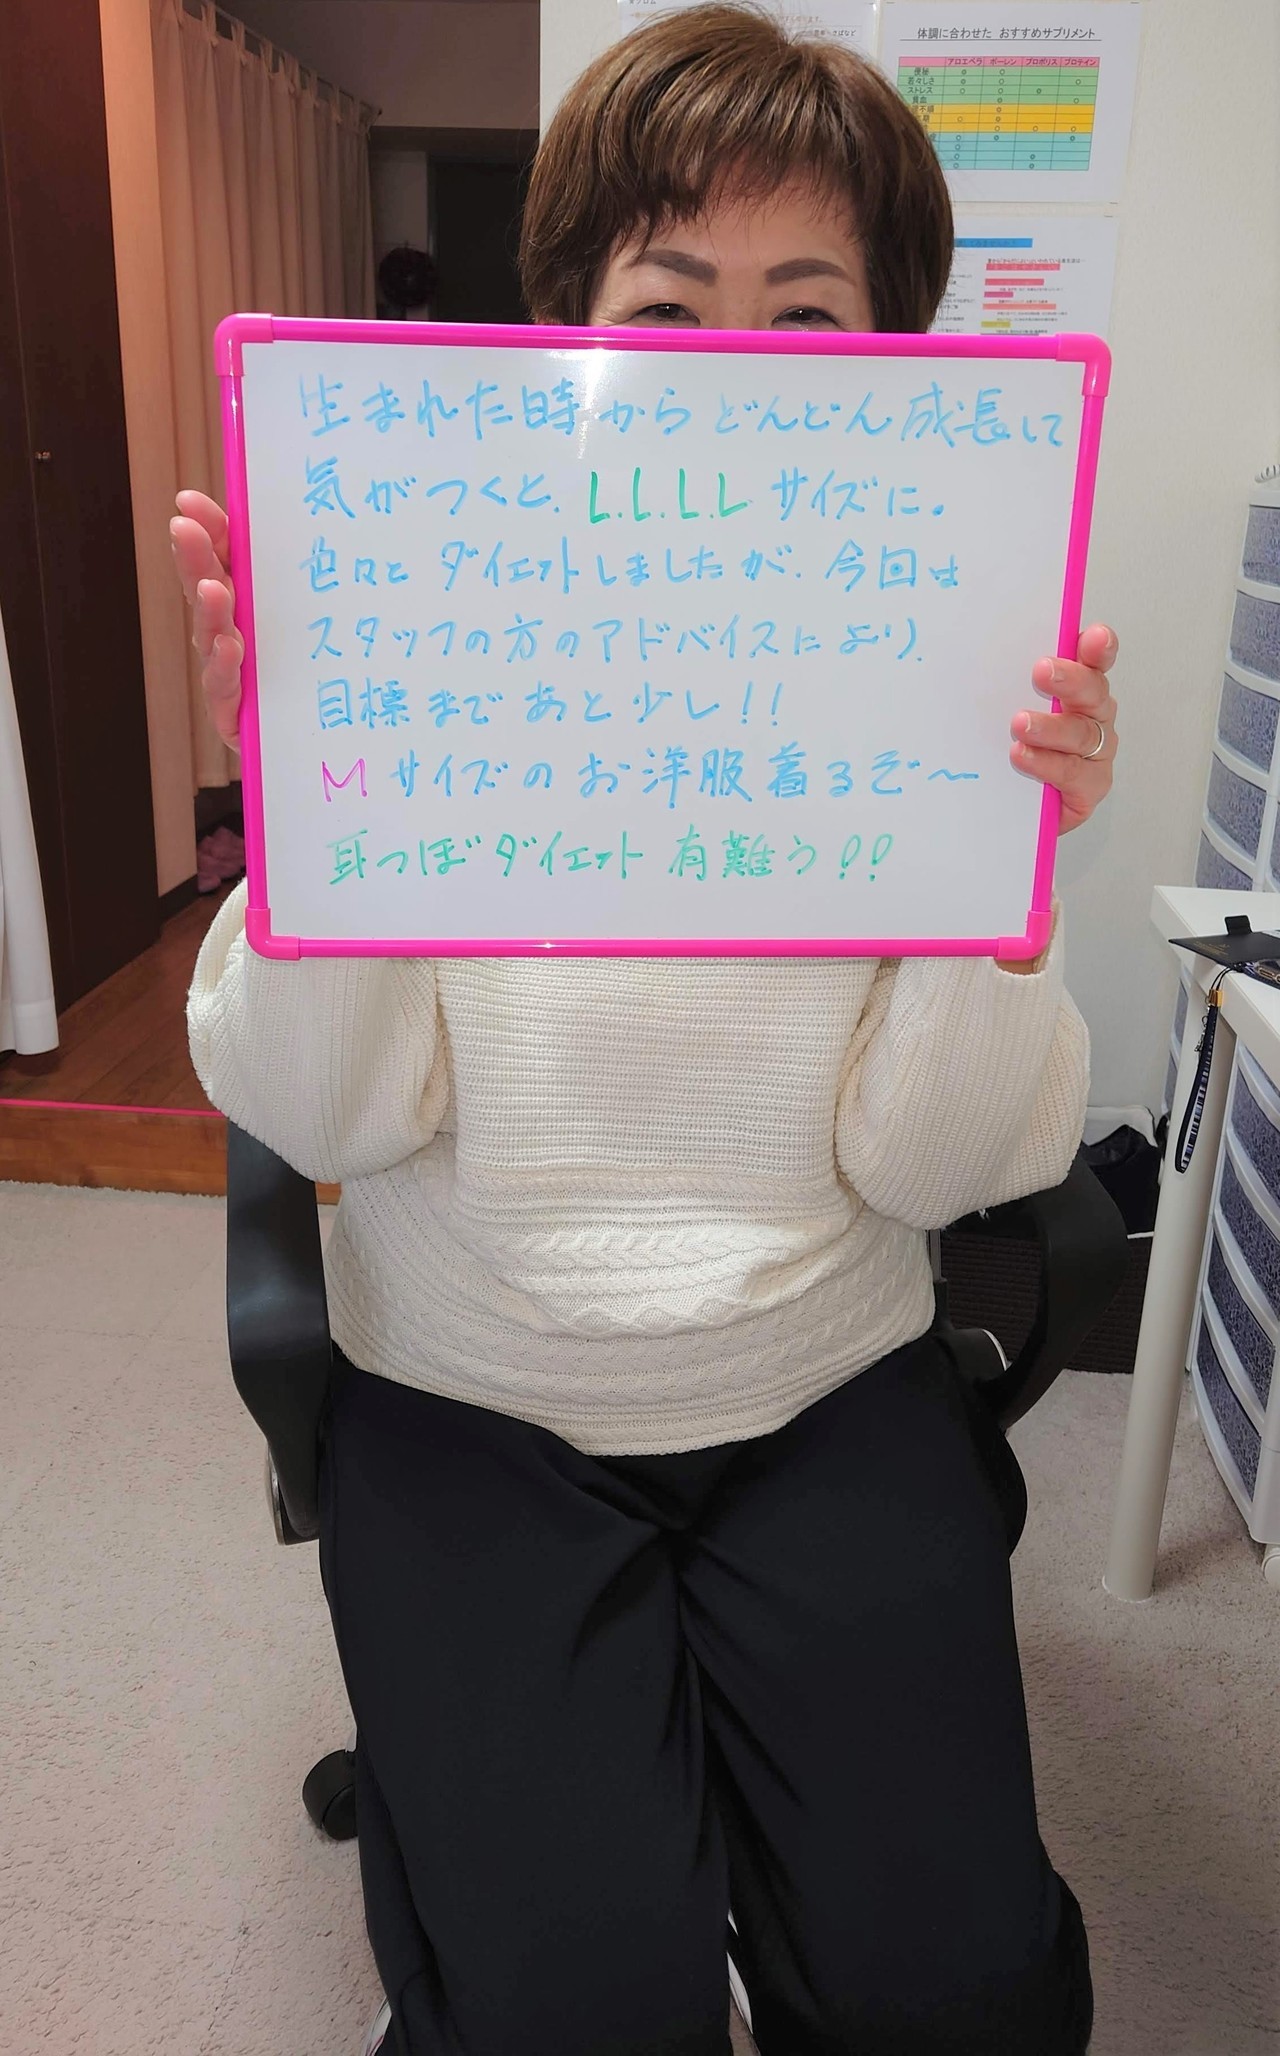 体調に合わせた おすすめサプリメント
アロエベラ ポーレン プロポリス プロテイン
便秘
若々しさ
ストレス
貧血
生まれた時からどんどん成長して
気がつくと、L.L.L.Lサイズに。
色々とダイエットしましたが、今回は
スタッフの方のアドバイスにより、
目標まであと少し!!
Mサイズのお洋服着るぞ〜
耳つぼダイエット有難う!!